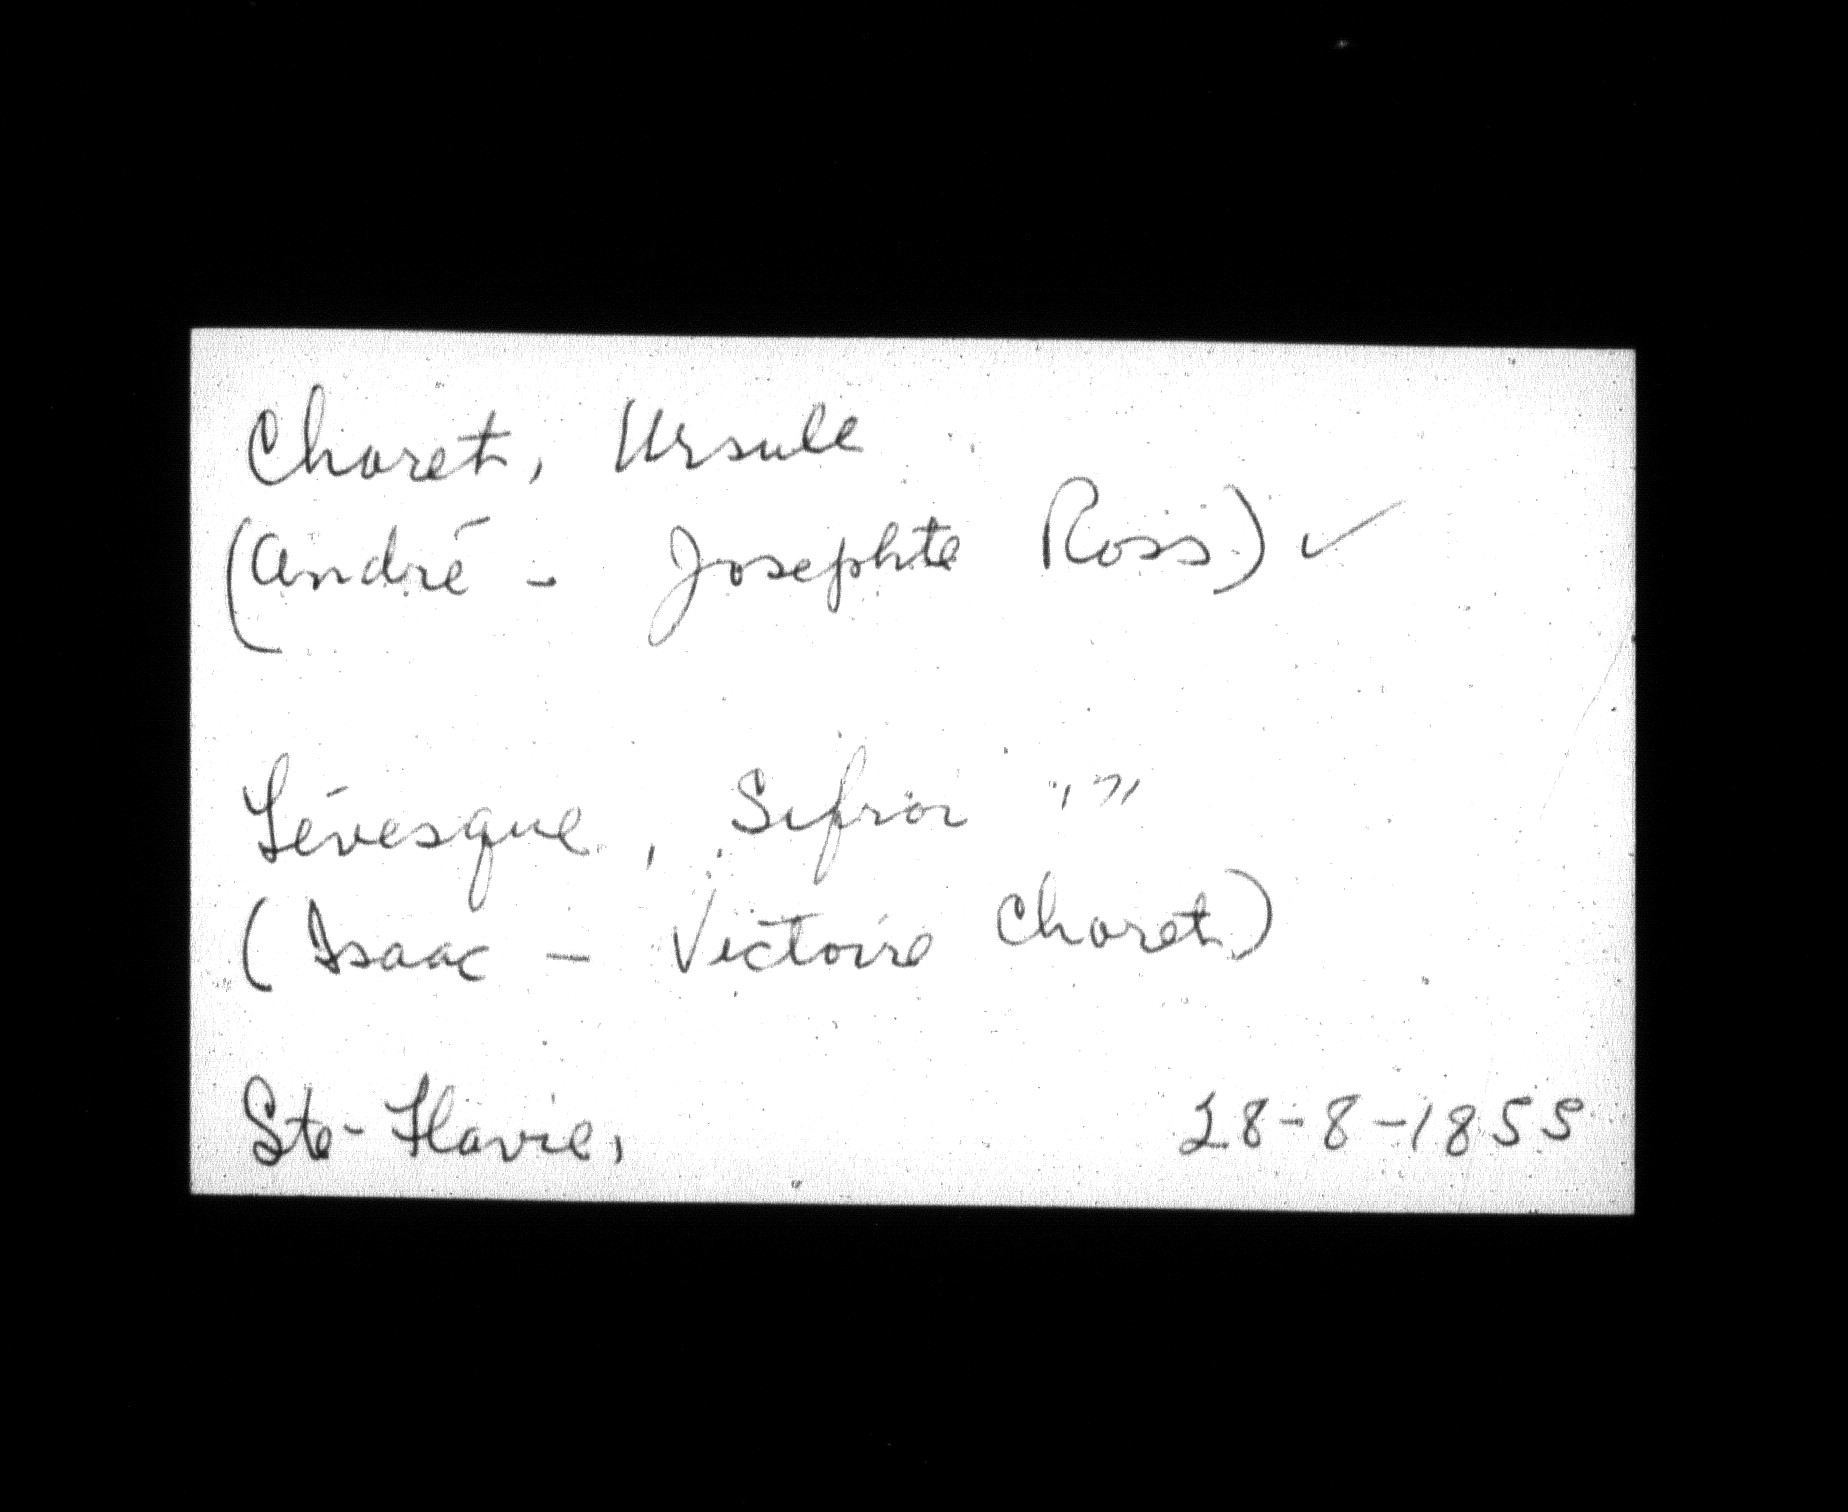 Choret, Ursule
(André - Josephte Ross) ✓
Lévesque, Sifroi " "
(Isaac - Victoire Choret)
Ste-Flavie, 28-8-1855